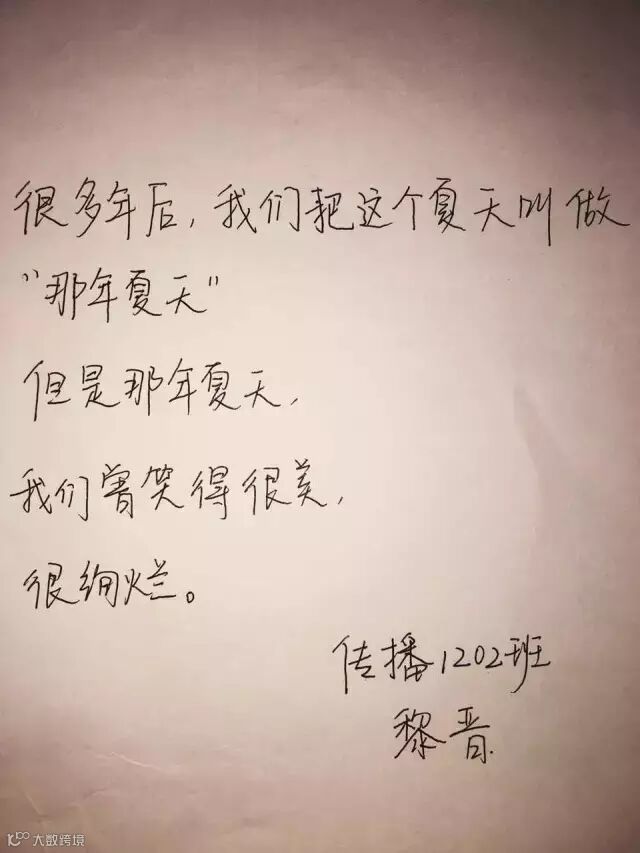 很多年后，我们把这个夏天叫做
“那年夏天”
但是那年夏天，
我们曾笑得很美，
很绚烂。
传播1202班
黎晋
大数跨境